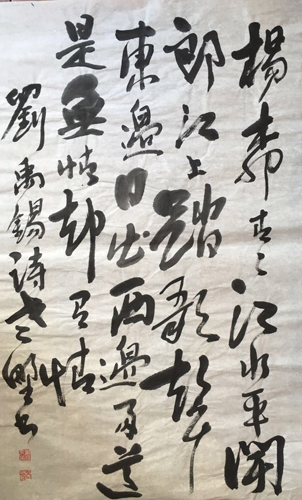 楊柳青々江水平聞
郎江上踏歌聲
東邊日出西邊雨道
是無情却有情
劉禹錫詩老野书